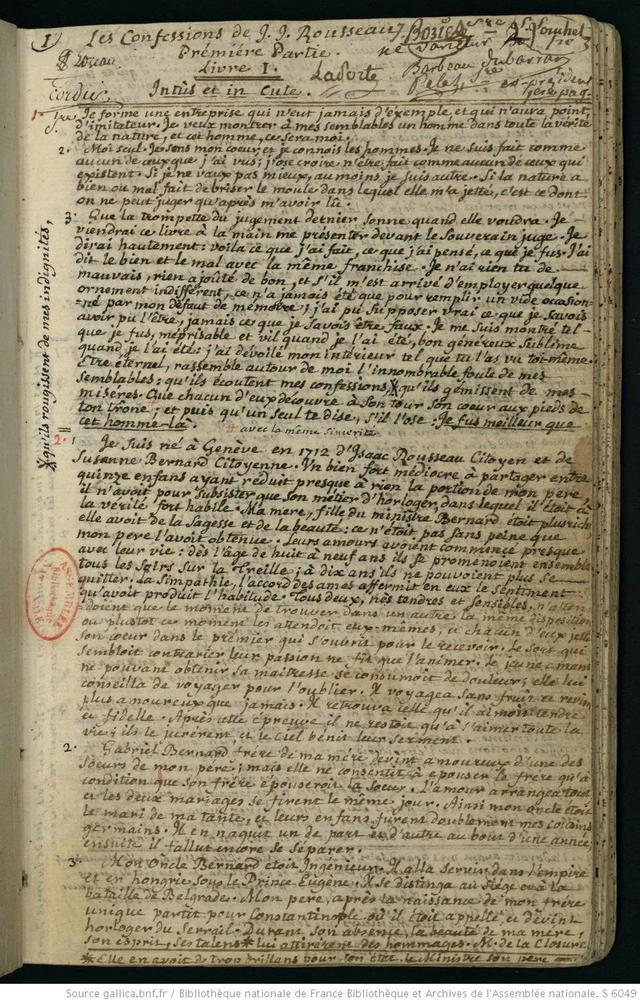 1)
Les Confessions de J. J. Rousseau
Première Partie.
Livre I.
Intùs et in Cute.
Laporte
Je forme une entreprise qui n'eut jamais d'éxemple, et qui n'aura point
d'imitateur. Je veux montrer à mes semblables un homme dans toute la vérité
de la nature, et cet homme, ce sera moi.
2. Moi seul. Je sens mon coeur, et je connois les hommes. Je ne suis fait comme
aucun de ceux que j'ai vus; j'ose croire n'être fait comme aucun de ceux qui
éxistent. Si je ne vaux pas mieux, au moins je suis autre. Si la nature a
bien ou mal fait de briser le moule dans lequel elle m'a jetté, c'est ce dont
on ne peut juger qu'après m'avoir lû.
3. Que la trompette du jugement dernier sonne quand elle voudra. Je
viendrai ce livre à la main me présenter devant le Souverain juge. Je
dirai hautement: voila ce que j'ai fait, ce que j'ai pensé, ce que je fus. J'ai
dit le bien et le mal avec la même franchise. Je n'ai rien tu de
mauvais, rien ajoûté de bon, et s'il m'est arrivé d'employer quelque
ornement indifférent, ce n'a jamais été que pour remplir un vide occasion-
-né par mon défaut de mémoire; j'ai pu supposer vrai ce que je savois
avoir pu l'être, jamais ce que je savois être faux. Je me suis montré tel
que je fus, méprisable et vil quand je l'ai été, bon, généreux, sublime
quand je l'ai été: j'ai dévoilé mon intérieur tel que tu l'as vu toi-même.
Être éternel, rassemble autour de moi l'innombrable foule de mes
semblables: qu'ils écoutent mes confessions, X qu'ils gémissent de mes
miséres. Que chacun d'eux découvre à son tour son coeur aux pieds de
ton trône; et puis qu'un seul te dise, s'il l'ose: Je fus meilleur que
cet homme-là.
avec la même sincérité
X qu'ils rougissent de mes indignités,
2. 1 Je suis né à Genève en 1712 d'Isaac Rousseau Citoyen et de
Susanne Bernard Citoyenne. Un bien fort médiocre à partager entre
quinze enfans ayant réduit presque à rien la portion de mon pere,
il n'avoit pour subsister que son métier d'horloger, dans lequel il étoit à
la vérité fort habile. Ma mere, fille du ministre Bernard étoit plus riche
elle avoit de la sagesse et de la beauté: ce n'étoit pas sans peine que
mon pere l'avoit obtenue. Leurs amours avoient commencé presque
avec leur vie: dès l'âge de huit à neuf ans ils se promenoient ensemble
tous les soirs sur la Treille; à dix ans ils ne pouvoient plus se
quitter. La simpathie, l'accord des ames affermit en eux le sentiment
qu'avoit produit l'habitude. Tous deux, nés tendres et sensibles, n'atten
doient que le moment de trouver dans un autre la même disposition
ou plustot ce moment les attendoit eux-mêmes, et chacun d'eux jetta
son coeur dans le prémier qui s'ouvrit pour le recevoir. Le sort qui
sembloit contrarier leur passion ne fit que l'animer. Le jeune amant
ne pouvant obtenir sa maitresse se consumoit de douleur; elle lui
conseilla de voyager pour l'oublier. Il voyagea sans fruit, et revint
plus amoureux que jamais. Il retrouva celle qu'il aimoit tendre
et fidelle. Après cette épreuve il ne restoit qu'à s'aimer toute la
vie; ils le jurérent, et le Ciel bénit leur serment.
2. Gabriel Bernard frére de ma mére devint amoureux d'une des
soeurs de mon pere; mais elle ne consentit à épouser le frére qu'à
condition que son frére épouseroit la soeur. L'amour arrangea tout
et les deux mariages se firent le même jour. Ainsi mon oncle étoit
le mari de ma tante, et leurs enfans furent doublement mes cousins
germains. Il en naquit un de part et d'autre au bout d'une année,
ensuite il fallut encore se séparer.
3. Mon Oncle Bernard étoit Ingénieur: Il alla servir dans l'empire
et en hongrie sous le Prince Eugène. Il se distingua au siège et à la
bataille de Belgrade. Mon pere, après la naissance de mon frére
unique partit pour Constantinople où il étoit appellé, et devint
horloger du Serrail. Durant son absence, la beauté de ma mére,
son esprit, ses talens * lui attirèrent des hommages. M. de la Closure
* Elle en avoit de trop brillans pour son état, le Ministre son pere
Source gallica.bnf.fr / Bibliothèque nationale de France Bibliothèque et Archives de l'Assemblée nationale. S 6049